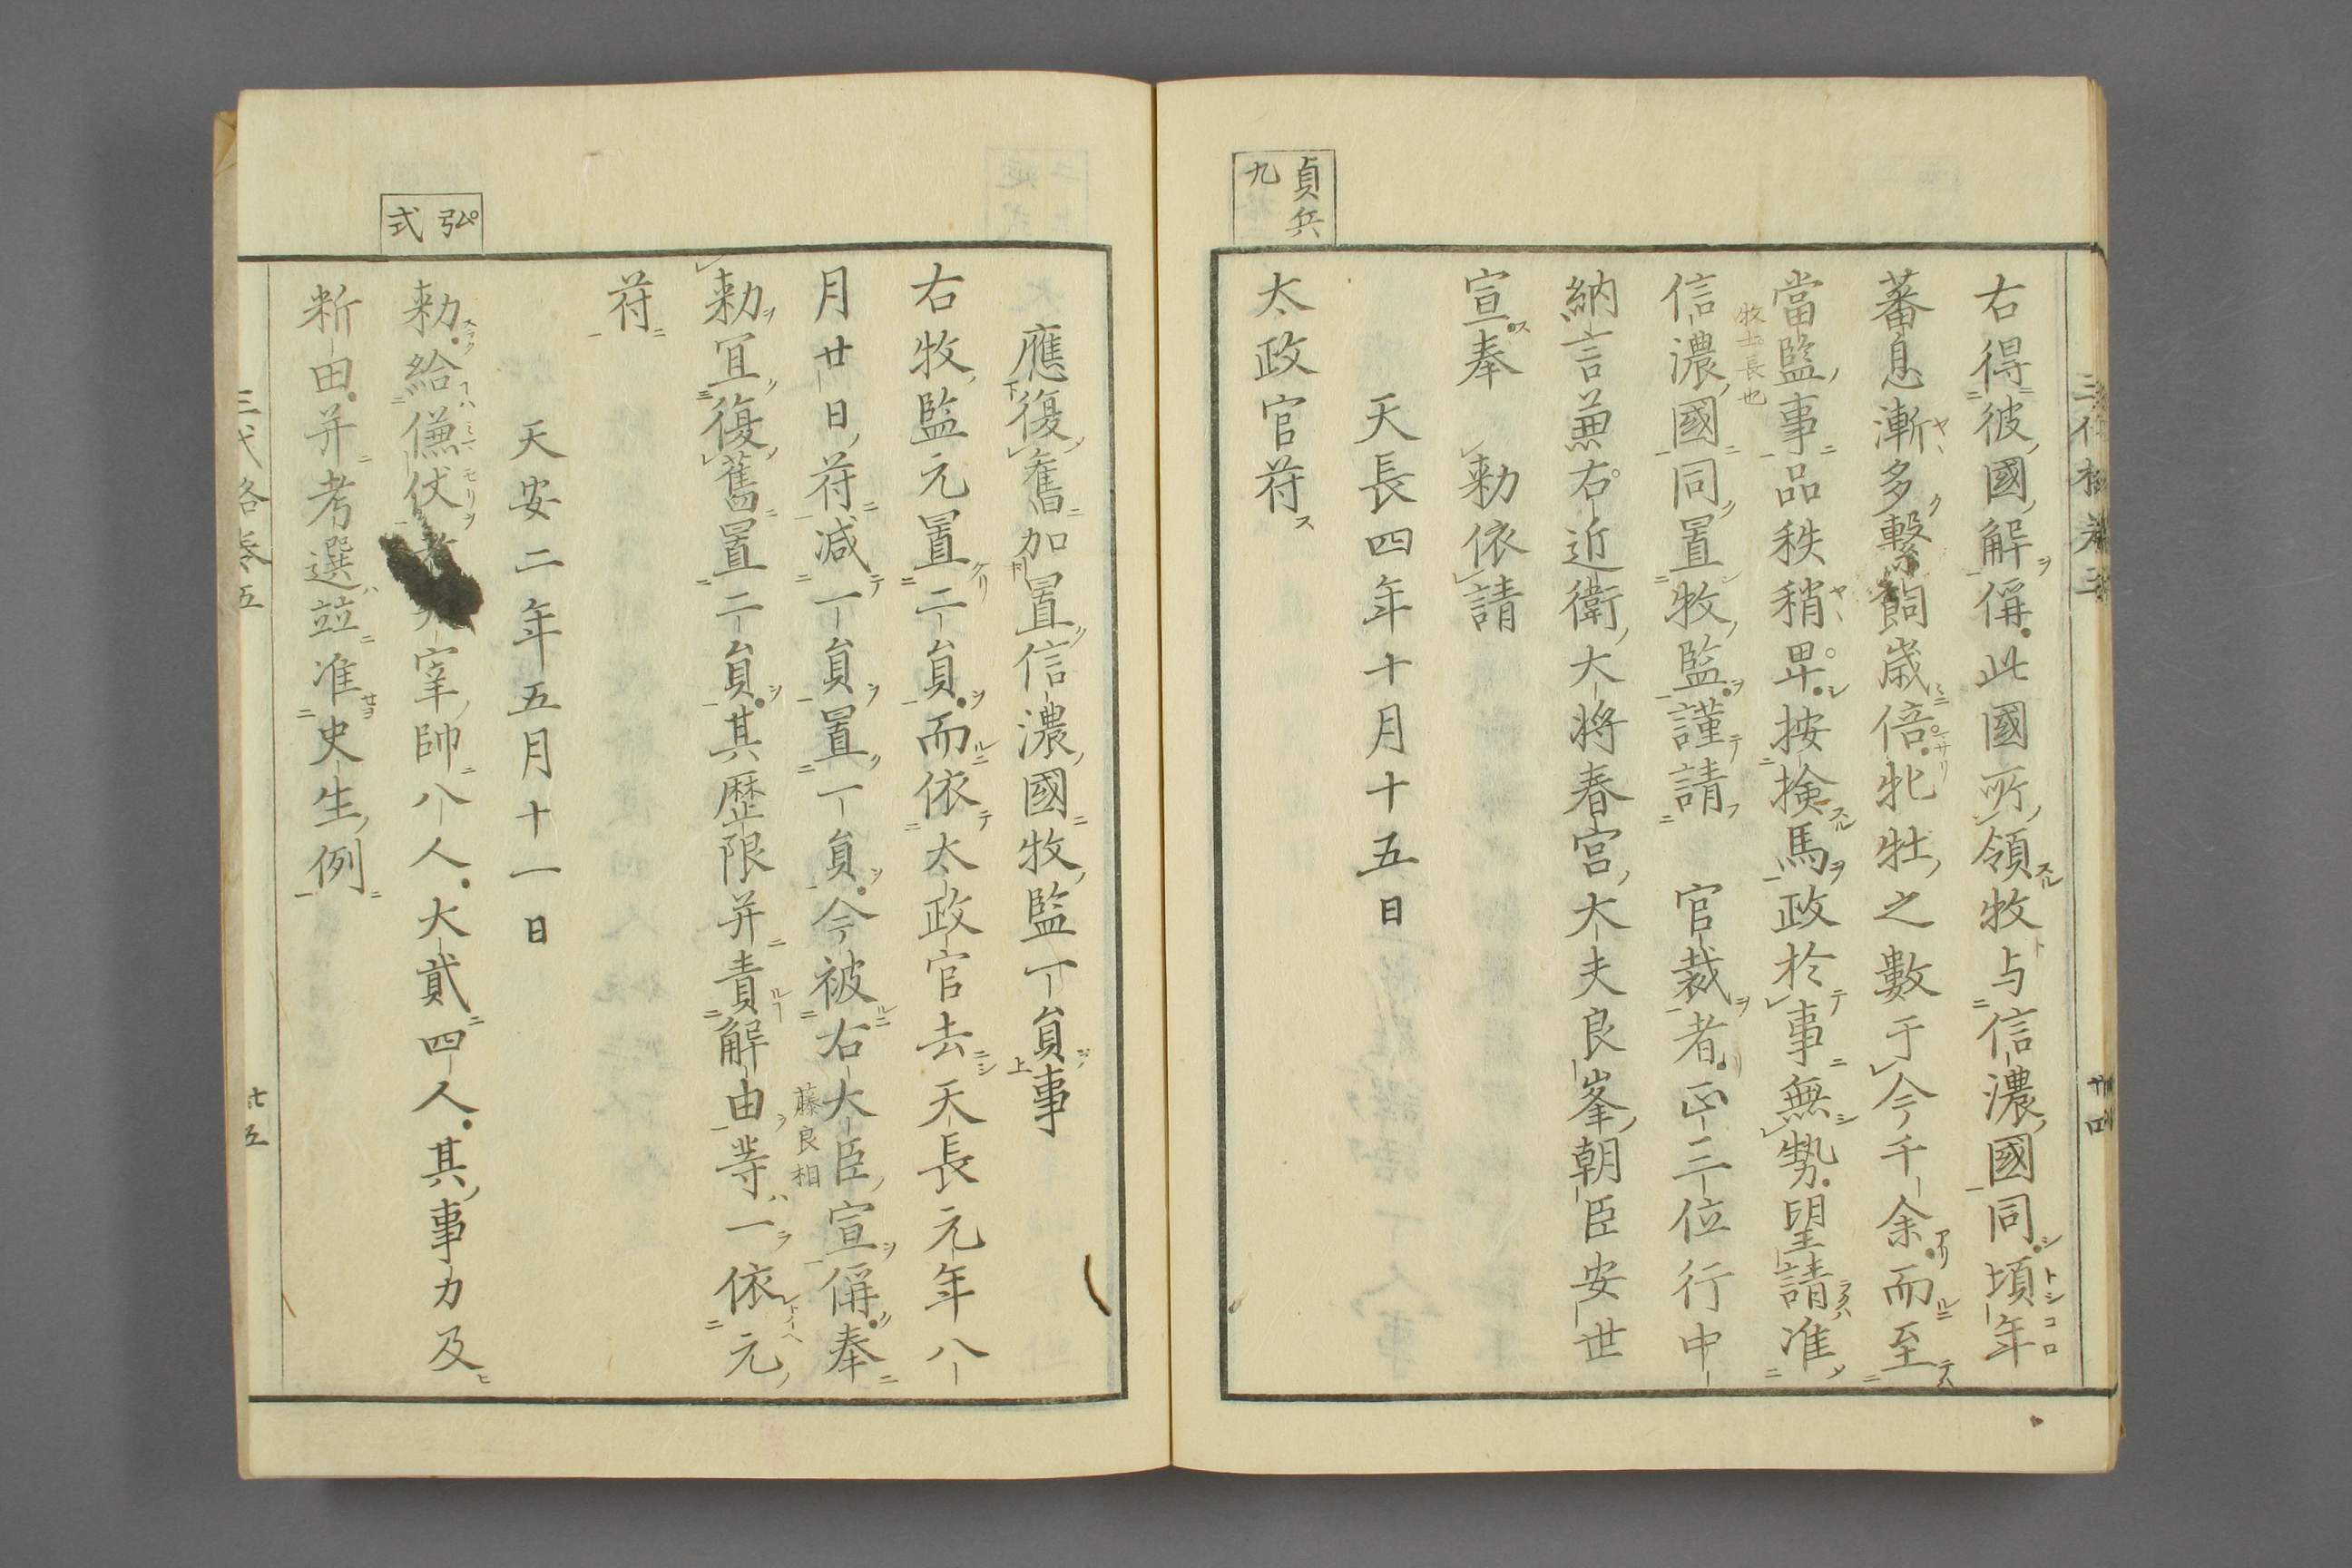 貞兵
九
右得彼國解偁此國所領牧与信濃國同頃年
蕃息漸多繋飼歳倍牝牡之數于今千余而至
當監事品秩稍卑按撿馬政於事無勢望請准
牧士長也
信濃國同置牧監謹請 官裁者正三位行中
納言兼右近衛大将春宮大夫良峯朝臣安世
宣奉 勅依請
天長四年十月十五日
太政官符
應復舊加置信濃國牧監一員事
右牧監元置二員而依太政官去天長元年八
月廿日符減一員置一員今被右大臣宣偁奉
藤良相
勅冝復舊置二員其歴限并責解由等一依元
符
天安二年五月十一日
弘
式
勅給傔仗者 宰帥八人大貳四人其事力及
断田并考選並准史生例
三代格巻五
廿五